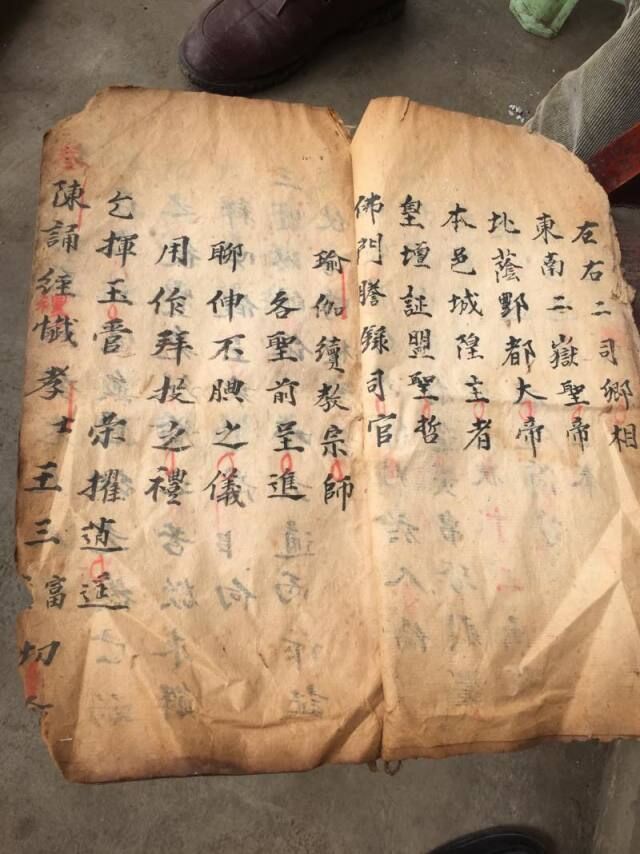 左右二司卿相
東南二嶽聖帝
北蔭酆都大帝
本邑城隍主者
皇壇証盟聖哲
佛門謄録司官
瑜伽續教宗師
各聖前呈進
聊伸不腆之儀
用作拜投之禮
乞揮玉管荣擢逍遥
陳誦經懺孝士王三富切